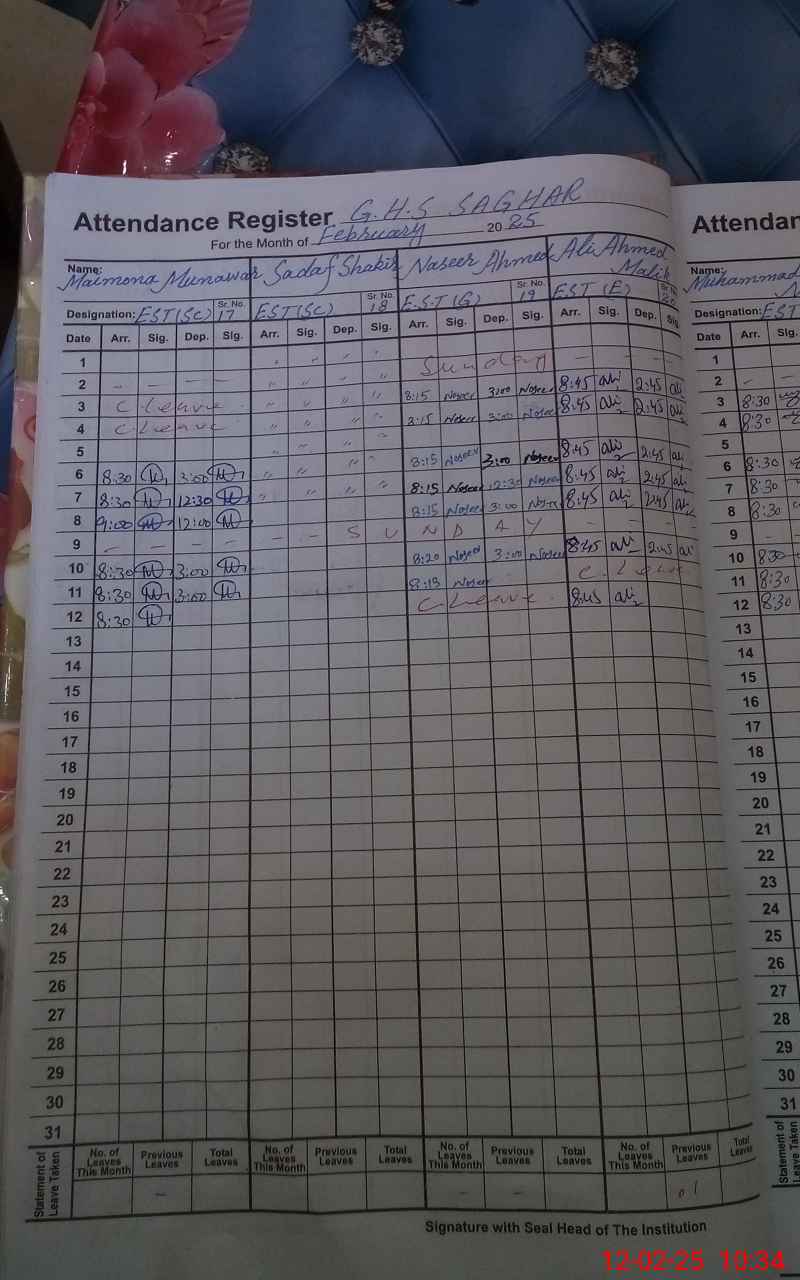 Attendance Register G.H.S SAGHAR
For the Month of February 2025
Name: Maimona Munawar Sadaf Shakir Naseer Ahmed Ali Ahmed Malik
Designation: EST(SC) Sr. No. 17 EST(SC) Sr. No. 18 E.S.T (G) Sr. No. 19 EST (E) Sr. No. 20
Date Arr. Sig. Dep. Sig. Arr. Sig. Dep. Sig. Arr. Sig. Dep. Sig. Arr. Sig. Dep. Sig.
1 Sunday
2 8:15 Naseer 3:00 Naseer 8:45 ali 2:45 ali
3 C. Leave 8:15 Naseer 3:00 Naseer 8:45 ali 2:45 ali
4 C. Leave
5 8:15 Naseer 3:00 Naseer 8:45 ali 2:45 ali
6 8:30 3:00 8:15 Naseer 12:30 Naseer 8:45 ali 2:45 ali
7 8:30 12:30 8:15 Naseer 3:00 Naseer 8:45 ali 2:45 ali
8 9:00 12:00 SUNDAY
9 - - - - 8:20 Naseer 3:00 Naseer 8:45 ali 2:45 ali
10 8:30 3:00 8:15 Naseer C. Leave
11 8:30 3:00 C Leave. 8:45 ali
12 8:30
13
14
15
16
17
18
19
20
21
22
23
24
25
26
27
28
29
30
31
Statement of Leave Taken
No. of Leaves This Month Previous Leaves Total Leaves No. of Leaves This Month Previous Leaves Total Leaves No. of Leaves This Month Previous Leaves Total Leaves No. of Leaves This Month Previous Leaves Total Leaves
- - - 01
Signature with Seal Head of The Institution
Attendan
Name: Muhammad
Designation: EST
Date Arr. Sig.
1
2 -
3 8:30
4 8:30
5
6 8:30
7 8:30
8 8:30
9 -
10 8:30
11 8:30
12 8:30
13
14
15
16
17
18
19
20
21
22
23
24
25
26
27
28
29
30
31
Statement of Leave Taken
12-02-25 10:34